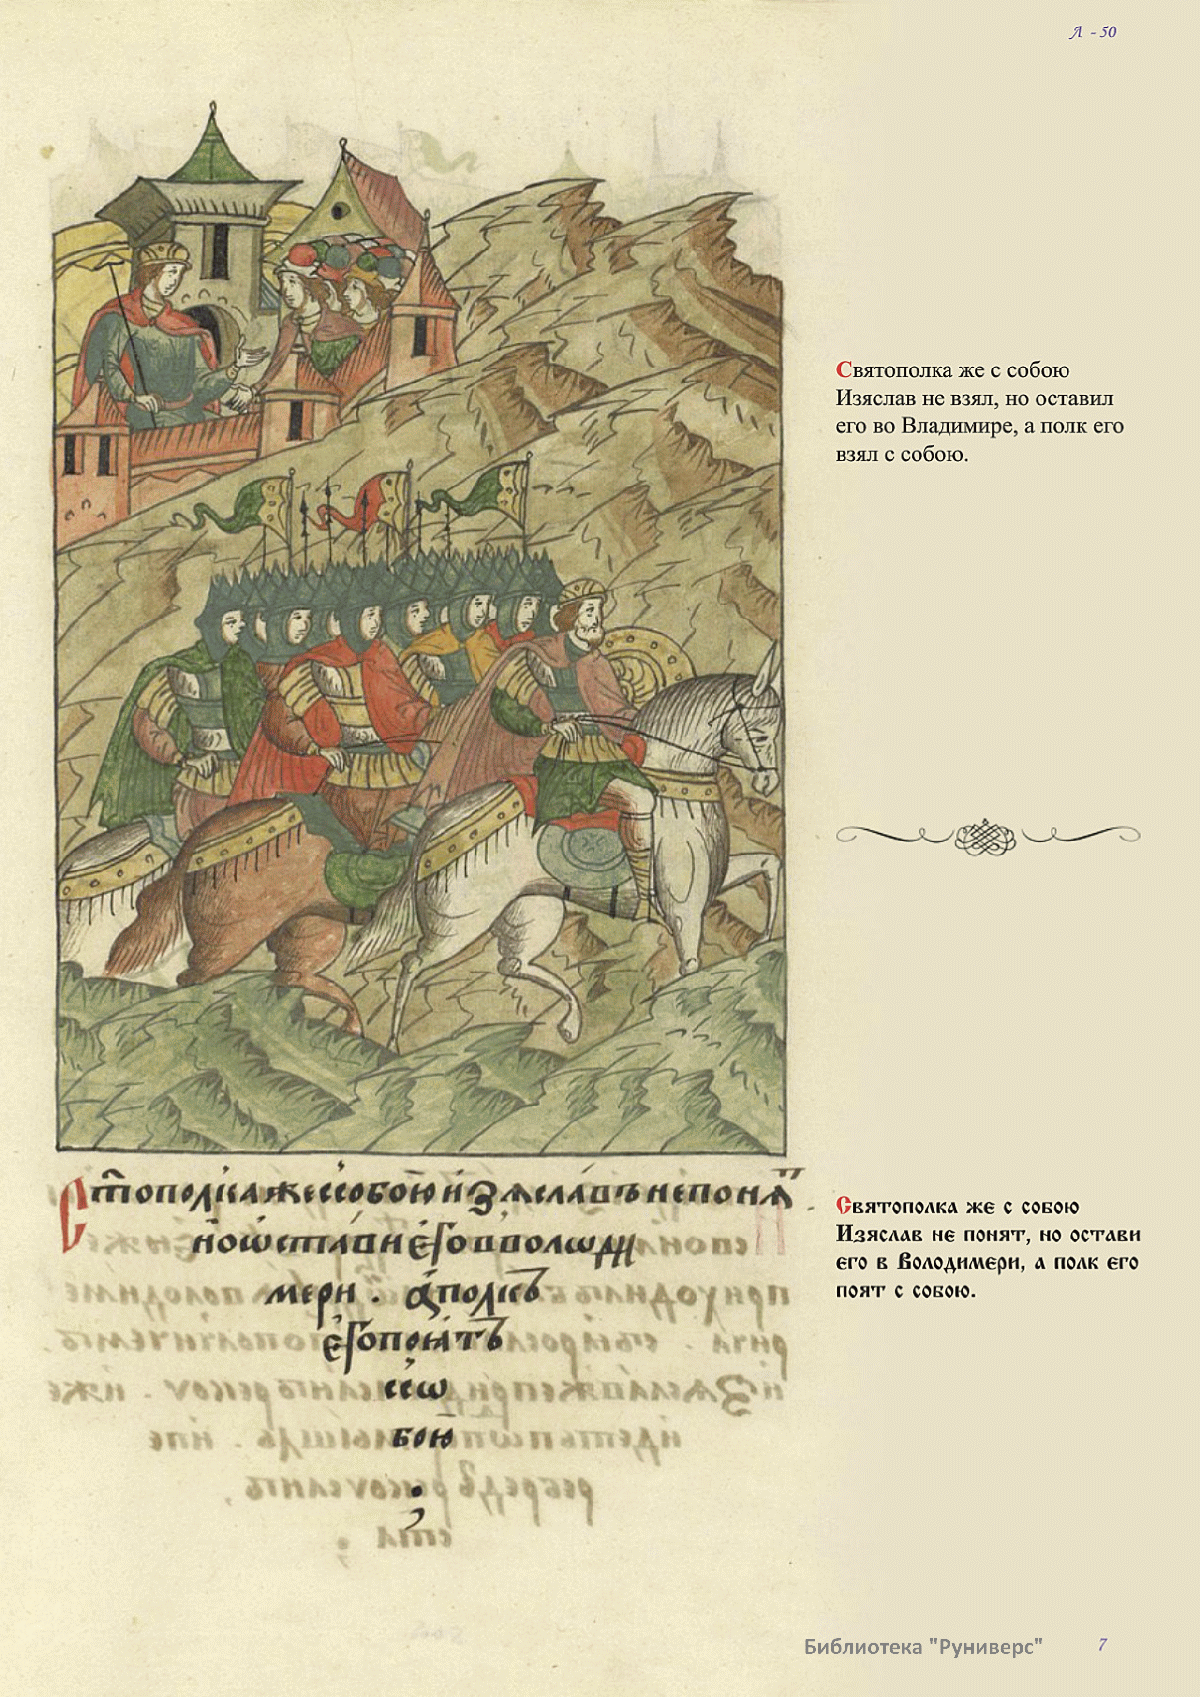 Л - 50
Святополка же с собою
Изяслав не взял, но оставил
его во Владимире, а полк его
взял с собою.
Стополкажессобоюизѧславънепонѧт
ноѡставиеговвролѡди
мери . аполкъ
егопоѧтъ
ссѡ
бою
Святополка же с собою
Изяслав не понят, но остави
его в Володимери, а полк его
поят с собою.
Библиотека "Руниверс"
7